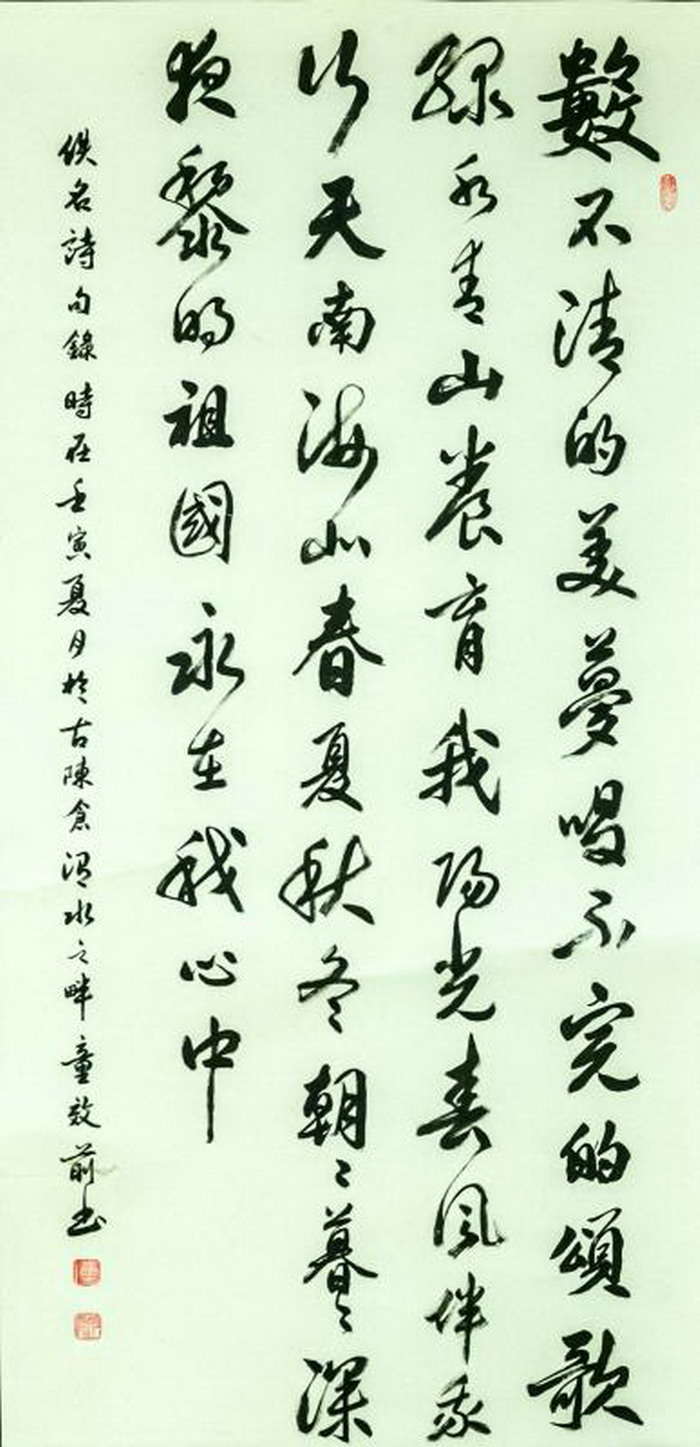 數不清的美夢唱不完的頌歌
綠水青山養育我陽光春風伴我
行天南海北春夏秋冬朝〻暮〻深
夜黎明祖國永在我心中
佚名詩句錄時在壬寅夏月於古陳倉渭水之畔童效前書